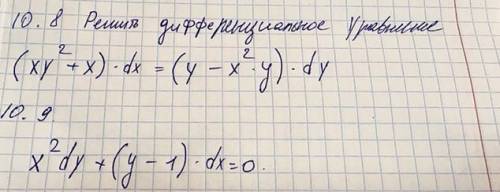 10.8 Решить дифференциальное уравнение
(xy² + x) · dx = (y − x² · y) · dy
10.9
x² dy + (y − 1) · dx = 0.